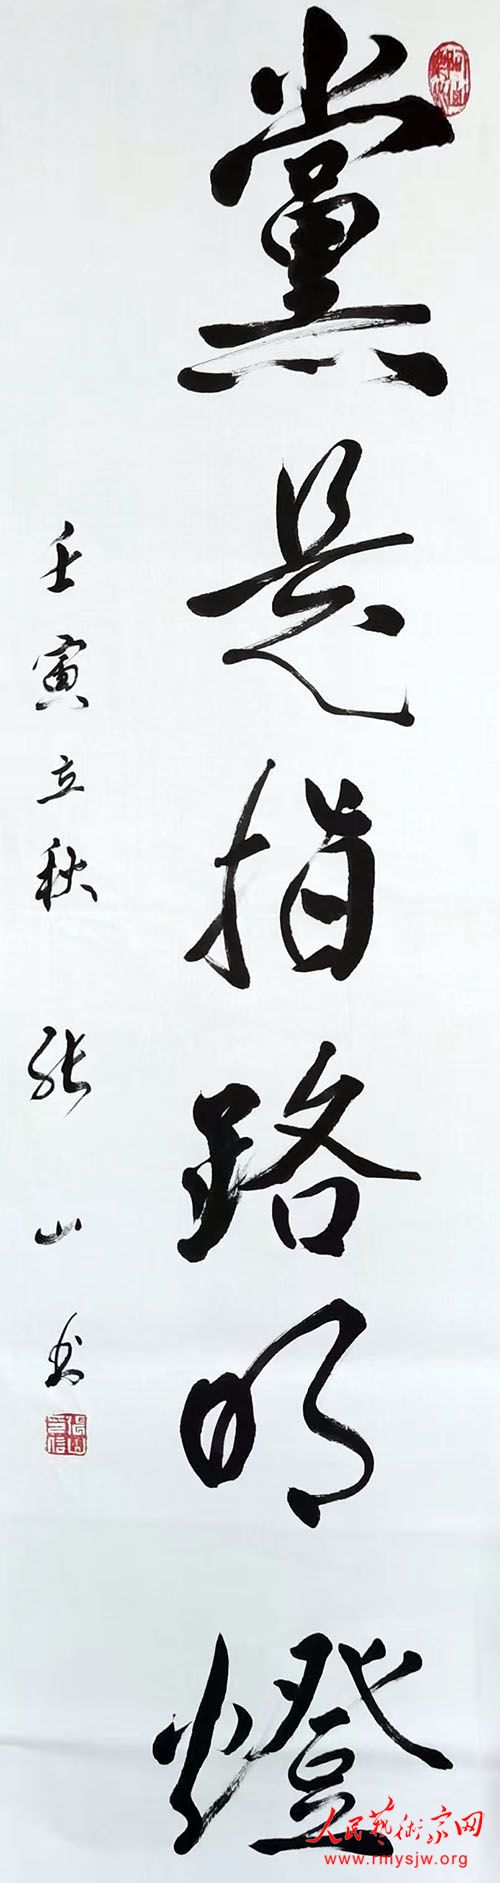 黨是指路明燈
壬寅立秋 張山书
人民藝術家网
www.rmysjw.org